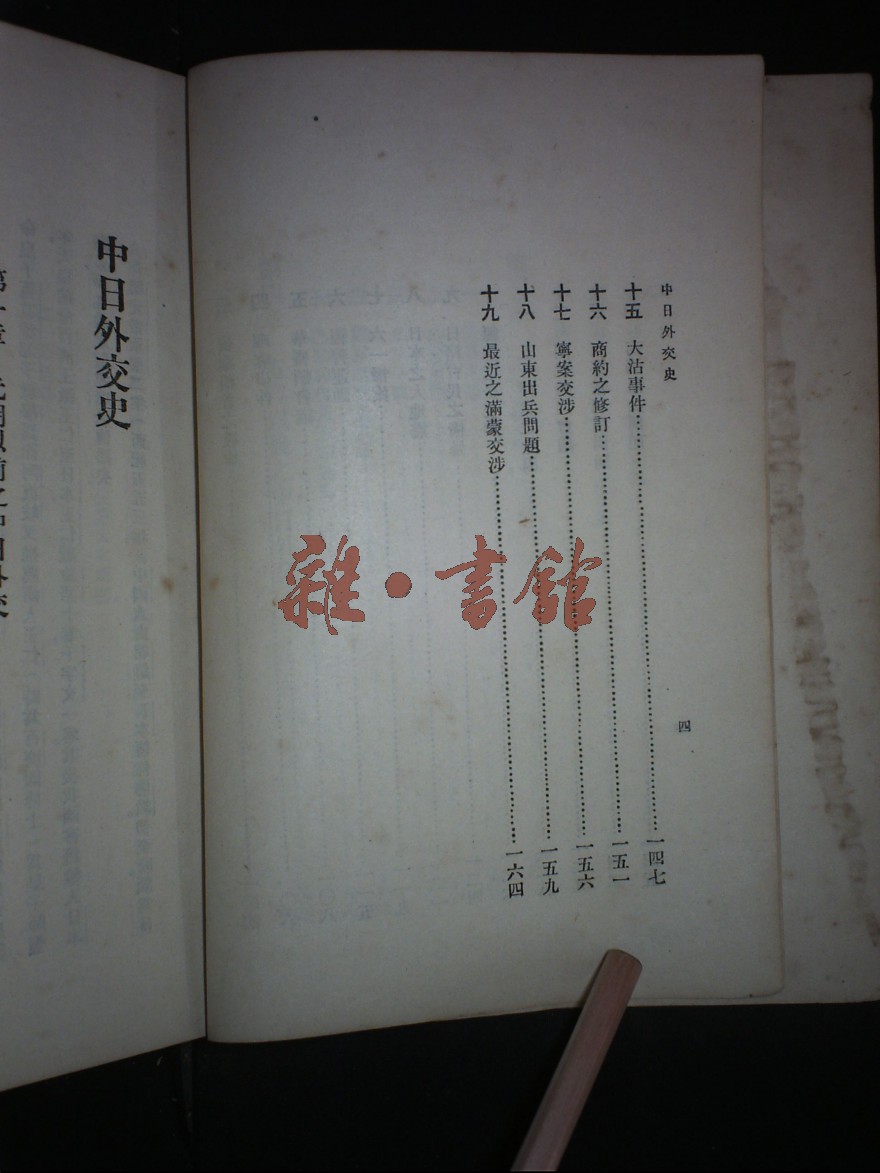 中日外交史
十五 大沽事件……一四七
十六 商約之修訂……一五一
十七 寧案交涉……一五六
十八 山東出兵問題……一五九
十九 最近之滿蒙交涉……一六四
四
中日外交史
雜·書館